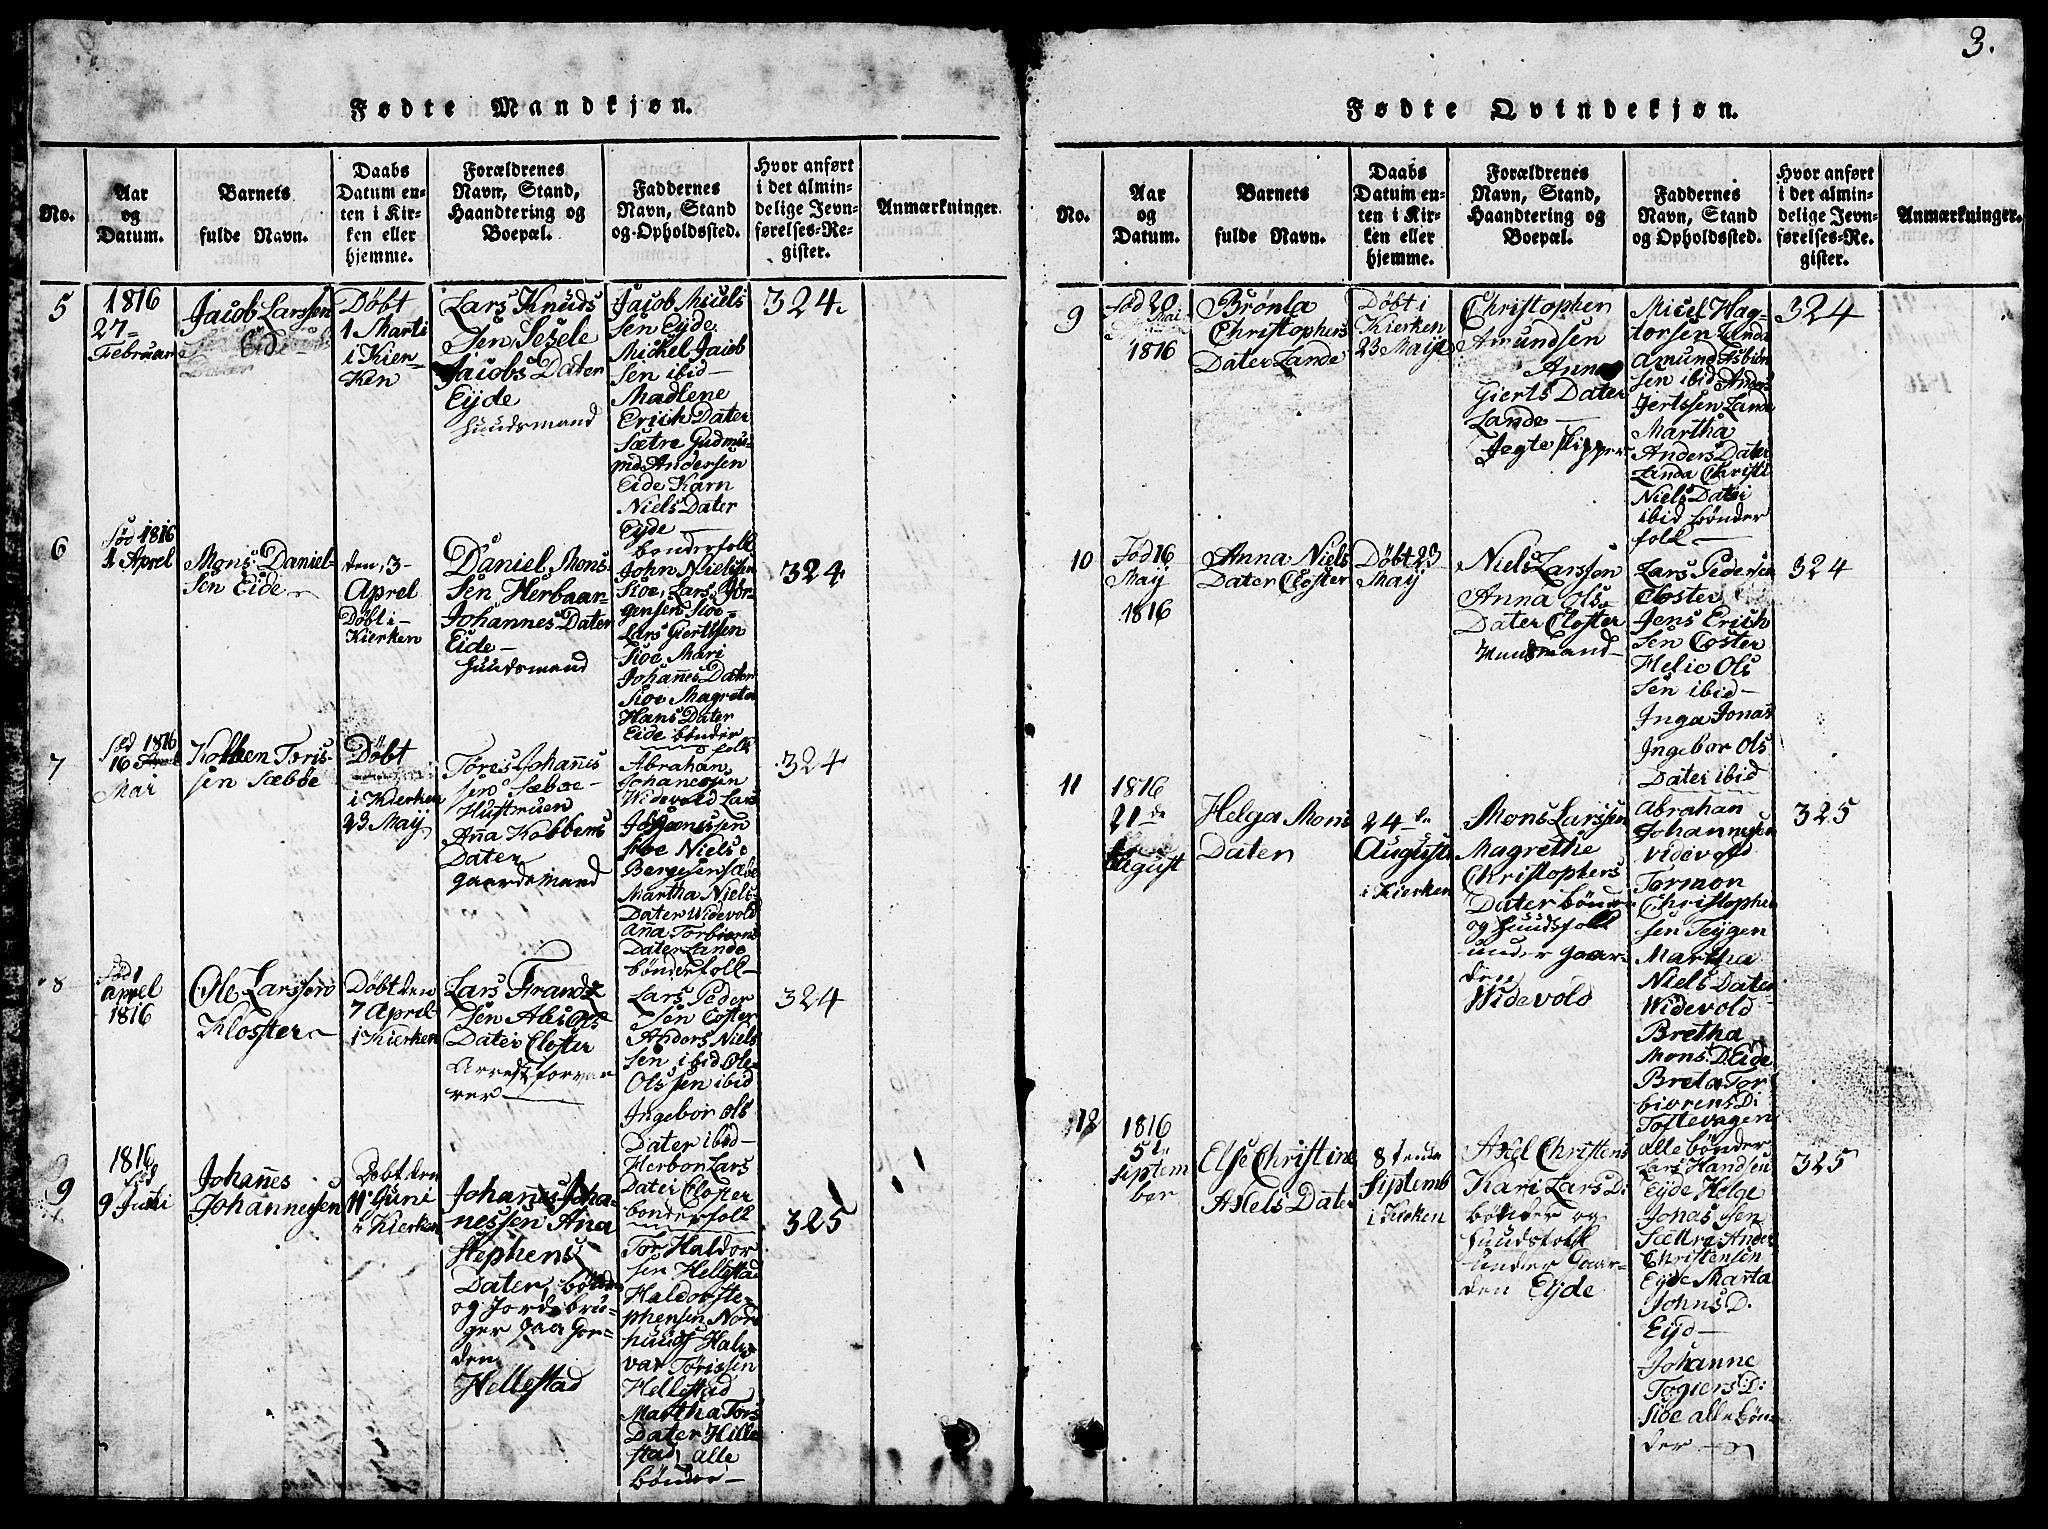 3.
Fødte Mandkjøn.
No.
Aar
og
Datum.
Barnets
fulde Navn.
Daabs
Datum en-
ten i Kir-
ken eller
hjemme.
Forældrenes
Navn, Stand,
Haandtering og
Boepæl.
Faddernes
Navn, Stand
og Opholdssted.
Hvor anført
i det almin-
delige Jevn-
førelses-Re-
gister.
Anmærkninger.
5
1816
27
Februari
Jacob Larssen
Eide
Døbt
1 Marti
i Kier-
ken
Lars Knuds
Sen Sesele
Jacobs Dater
Eyde
huusmand
Jacob Micels
sen Eyde
Mickel Jacob
sen ibid
Madlene
Erich Dater
Sætre Gudmu-
nd Andersen
Eide Karn
Niels Dater
Eyde
bønderfolk
324.
6
Fød 1816
1 Aprel
Mons Daniel-
sen Eide
den 3
Aprel
Døbt i
Kierken
Daniel Mons
Sen Herbaar
Johannes Dater
Eide
huusmand
John Nielsen
Sioe, Lars Jør-
gensen Sioe
Lars Giertsen
Sioe Mari
Johañes Dater
Sioe Magreta
Hans Dater
Eide bønder
folk
324
7
Fød 1816
16
Mai
Kolben Toris-
sen Sæbøe
Døbt
i Kierken
23 Maij
Tøres Johañes
sen Sæbøe
Hustruen
Aña Kolbens
Dater
gaardemand
Abrahan
Johanesen
Widevold Lars
Jørgensen
Sioe Niels
Bergesen Sæbøe
Martha Niels
Dater Widevold
Aña Torbiorns
Dater Lande
bønderfolk
324
8
Fød 1
Aprel
1816
Ole Larssen
Kloster
Døbt den
7 Aprel
i Kierken
Lars Frands
Sen Ols
Dater Closter
Arrestforvar
rer
Lars Peder
sen Coster
Anders Niels
sen ibid Ole
Olssen ibid
Ingebor Ols
Dater ibid
Herbor Lars
Dater Closter
bønderfolk
324
9
1816
Fød
9 Juni
Johañes
Johannesen
Døbt den
11 Juni
i Kierken
Johañes Joha-
nessen Ana
Stephens
Dater, bønder
og Jordbru-
ger paa Gor-
den
Hellestad
Tor Haldor
sen Hellestad
Haldor Ste-
phensen Nord
huus Hal
var Tørissen
Hellestad
Martha Tors
Dater Hille
stad, alle
bønder
325
Fødte Qvindekjøn.
No.
Aar
og
Datum.
Barnets
fulde Navn.
Daabs
Datum en-
ten i Kir-
ken eller
hjemme.
Forældrenes
Navn, Stand,
Haandtering og
Boepæl.
Faddernes
Navn, Stand
og Opholdssted.
Hvor anført
i det almin-
delige Jevn-
førelses-Re-
gister.
Anmærkninger.
9
Fød 20
Mai
1816
Brønla
Christophers
Dater Lande
Døbt i
Kierken
23 Maij
Christopher
Amundsen
Anna
Gierts Dater
Lande
Jegteskipper
Micel Hag-
torsen Landa
Amund Asbiun
sen ibid Anders
Jertssen Lande
Martha
Anders Dater
Landa Christi
Niels Dater
ibid bønder
folk
324
10
Fød 16
Maij
1816
Anna Niels
Dater Closter
Døbt 23
Maij
Niels Larsson
Anna Ols
Dater Closter
Huusmand
Lars Pedersen
Closter
Jens Erich
sen Coster
Helje Ols
sen ibid
Inga Jonas
Ingebor Ols
Dater ibid
324
11
1816
21de
August
Helga Mons
Dater
24de
August
i Kierken
Mons Larssen
Magrethe
Christophers
Dater bønder
og huusfolk
under Gaar-
den
Widevold
Abrahan
Johannesen
Videvold
Tormon
Christophen
sen Teigen
Martha
Niels Dater
Widevold
Bretha
Mons D. Eide
Breta Tor
biorens D:
Toftevagen
alle bønder
325
12
1816
5te
Septem
ber
Else Christine
Axels Dater
8tende
Septemb
i Kierken
Axel Christens
Kari Lars D:
bønder og
huusfolk
under Gaar-
den Eyde
Lars Handsen
Eyde Helge
Jonassen
Sættre Ander
Christensen
Eyde Marta
Johns D.
Eyd
Johanne
Togiers D:
Sioe alle bøn-
der
325